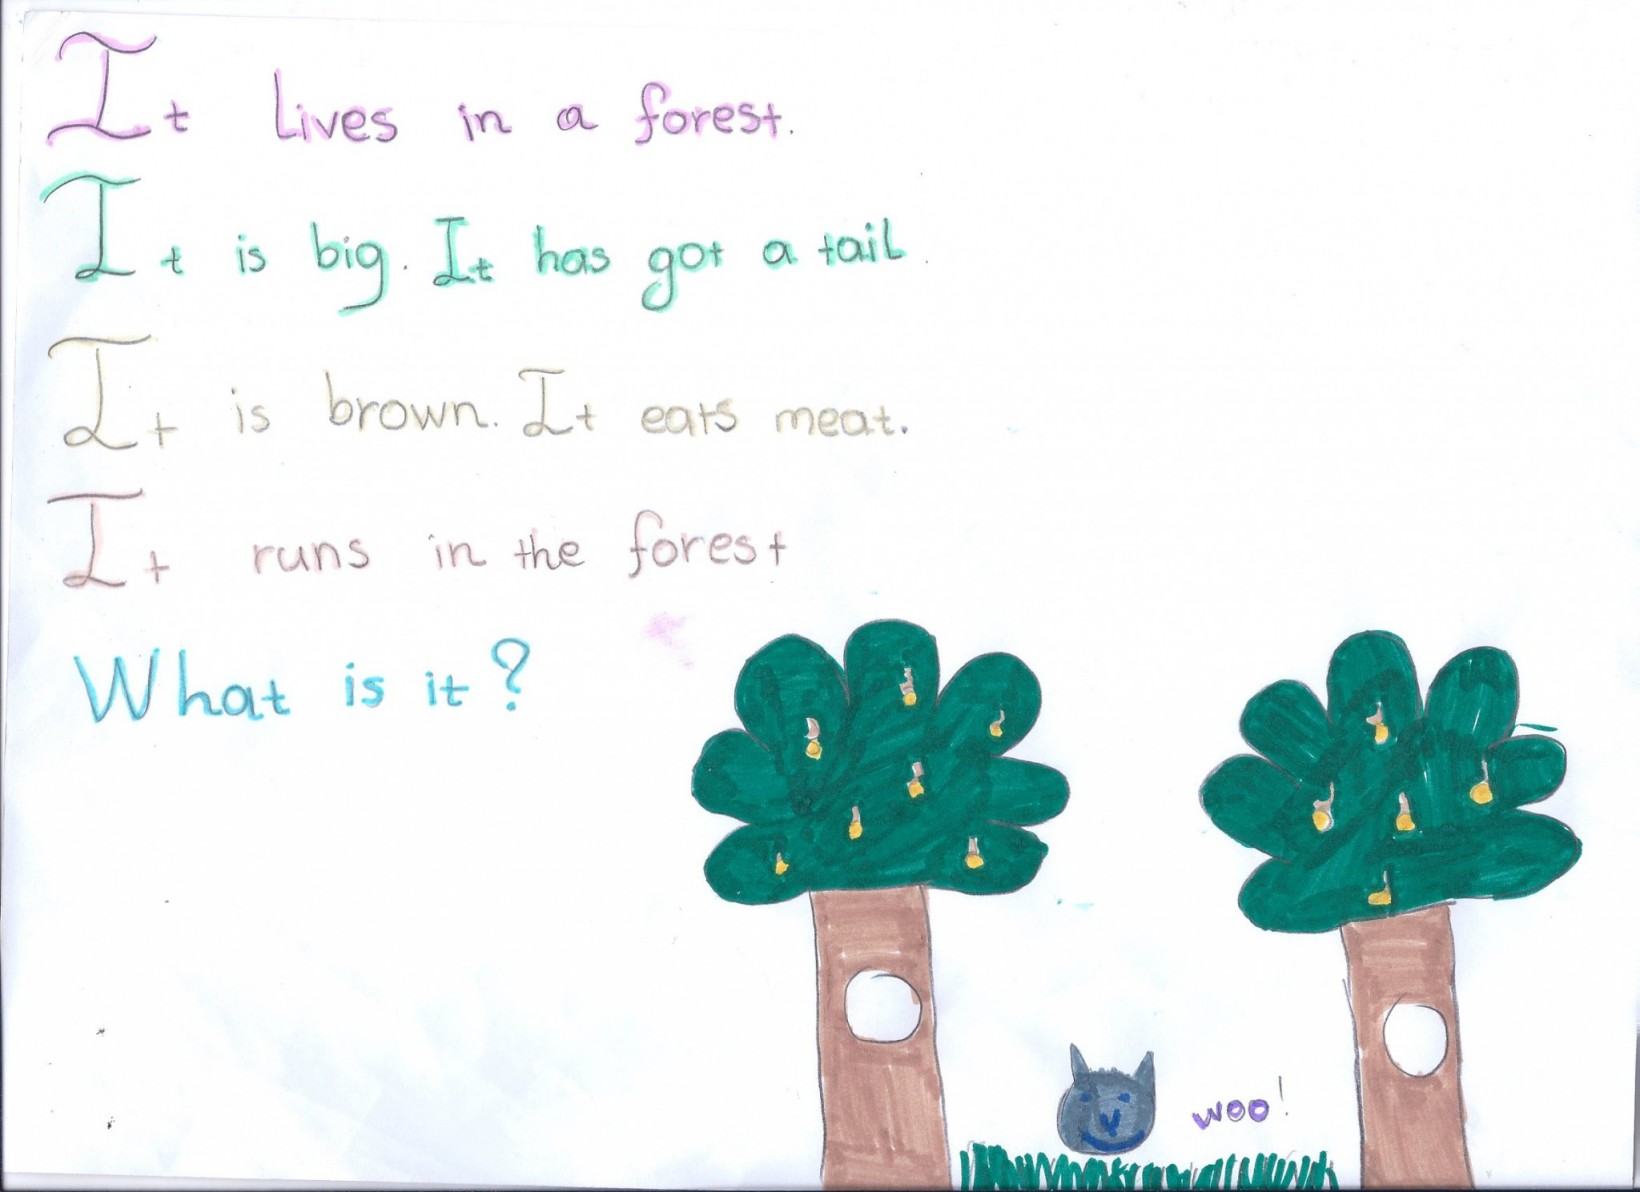 It Lives in a forest.
It is big. It has got a tail.
It is brown. It eats meat.
It runs in the forest
What is it?
woo!